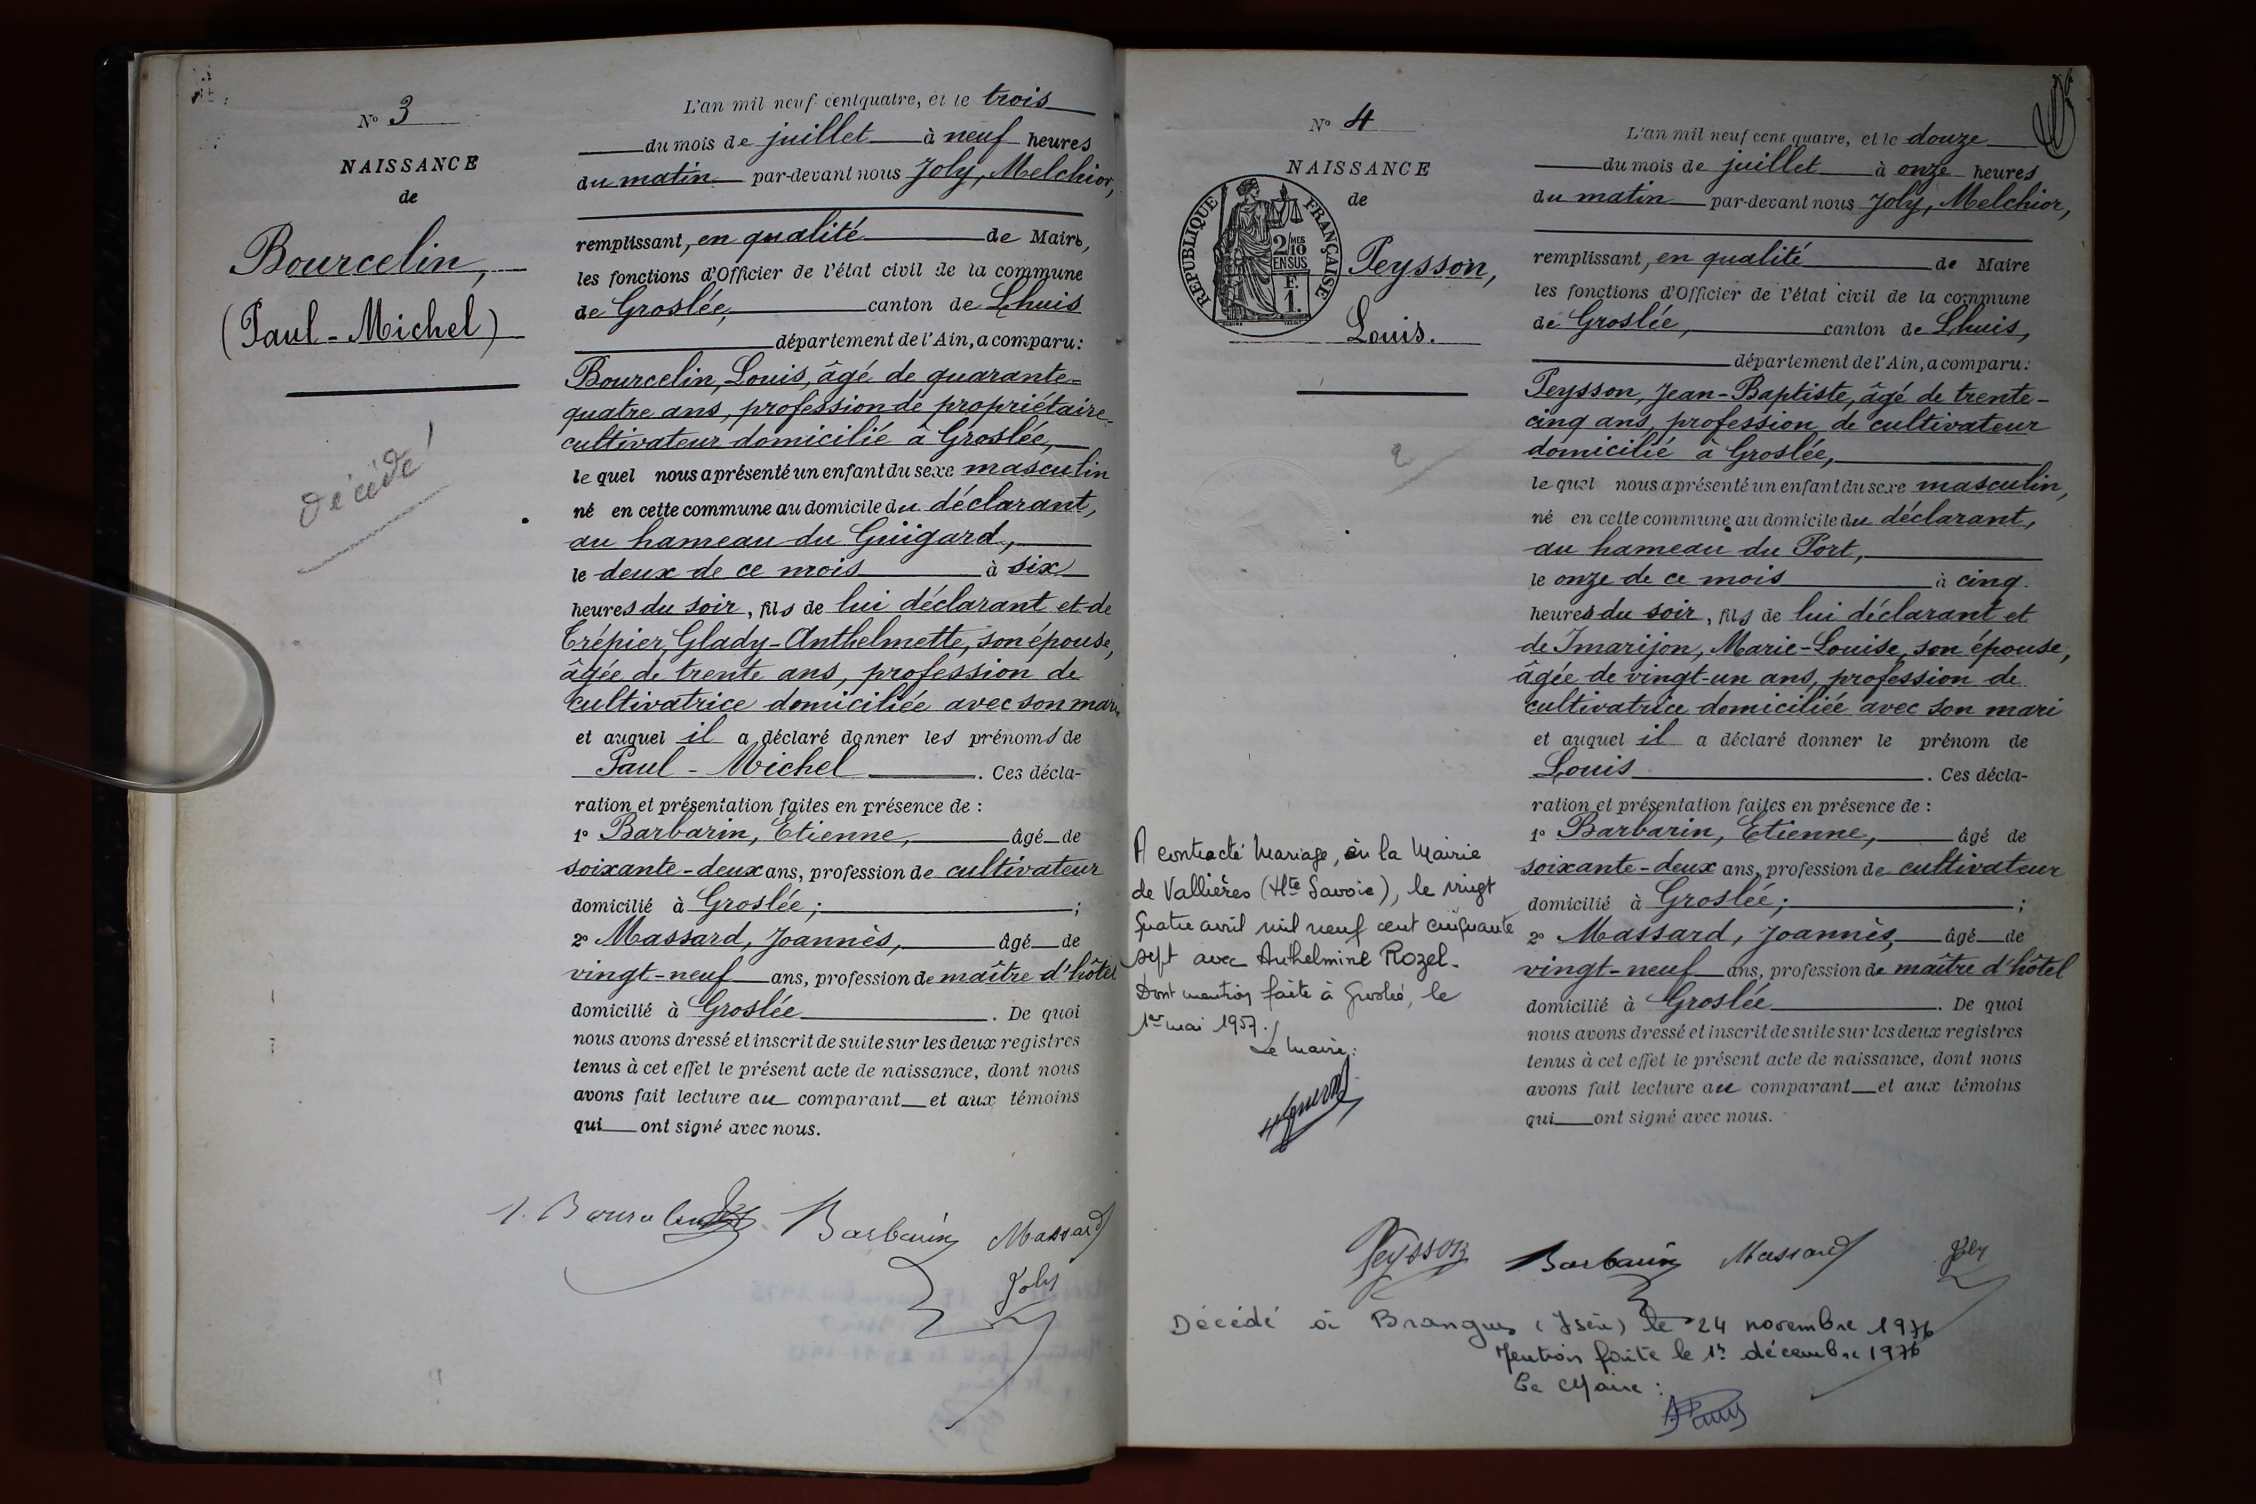 N° 3
NAISSANCE
de
Bourcelin,
(Paul-Michel)
décédé
L'an mil neuf cent quatre, et le trois
du mois de juillet à neuf heures
du matin par-devant nous Joly, Melchior,
remplissant, en qualité de Maire,
les fonctions d'Officier de l'état civil de la commune
de Groslée, canton de Lhuis
département de l'Ain, a comparu:
Bourcelin, Louis, âgé de quarante-
quatre ans, profession de propriétaire-
cultivateur domicilié à Groslée,
le quel nous a présenté un enfant du sexe masculin
né en cette commune au domicile du déclarant,
au hameau du Guigard,
le deux de ce mois à six
heures du soir, fils de lui déclarant et de
Trépier, Glady-Anthelmette, son épouse,
âgée de trente ans, profession de
cultivatrice domiciliée avec son mari
et auquel il a déclaré donner les prénoms de
Paul-Michel. Ces décla-
ration et présentation faites en présence de :
1° Barbarin, Etienne, âgé de
soixante-deux ans, profession de cultivateur
domicilié à Groslée; ;
2° Massard, Joannès, âgé de
vingt-neuf ans, profession de maître d'hôtel
domicilié à Groslée. De quoi
nous avons dressé et inscrit de suite sur les deux registres
tenus à cet effet le présent acte de naissance, dont nous
avons fait lecture au comparant et aux témoins
qui ont signé avec nous.
Barbarin Massard
Joly
N° 4
NAISSANCE
de
RÉPUBLIQUE FRANÇAISE
2/10 MES
EN SUS
F.
1.
Peysson,
Louis.
L'an mil neuf cent quatre, et le douze
du mois de juillet à onze heures
du matin par-devant nous Joly, Melchior,
remplissant, en qualité de Maire
les fonctions d'Officier de l'état civil de la commune
de Groslée, canton de Lhuis,
département de l'Ain, a comparu:
Peysson, Jean-Baptiste, âgé de trente-
cinq ans, profession de cultivateur
domicilié à Groslée,
le quel nous a présenté un enfant du sexe masculin,
né en cette commune au domicile du déclarant,
au hameau du Port,
le onze de ce mois à cinq
heures du soir, fils de lui déclarant et
de Imarijon, Marie-Louise, son épouse,
âgée de vingt-un ans, profession de
cultivatrice domiciliée avec son mari
et auquel il a déclaré donner le prénom de
Louis. Ces décla-
ration et présentation faites en présence de :
1° Barbarin, Etienne, âgé de
soixante-deux ans, profession de cultivateur
domicilié à Groslée; ;
2° Massard, Joannès, âgé de
vingt-neuf ans, profession de maître d'hôtel
domicilié à Groslée. De quoi
nous avons dressé et inscrit de suite sur les deux registres
tenus à cet effet le présent acte de naissance, dont nous
avons fait lecture au comparant et aux témoins
qui ont signé avec nous.
A contracté Mariage, en la Mairie
de Vallières (Hte Savoie), le vingt
quatre avril mil neuf cent cinquante
sept avec Anthelmine Rozel.
Dont mention faite à Groslée, le
1er mai 1957.
Le Maire:
Peysson Barbarin Massard Joly
Décédé à Brangues (Isère) le 24 novembre 1976
Mention faite le 1er décembre 1976
Le Maire :